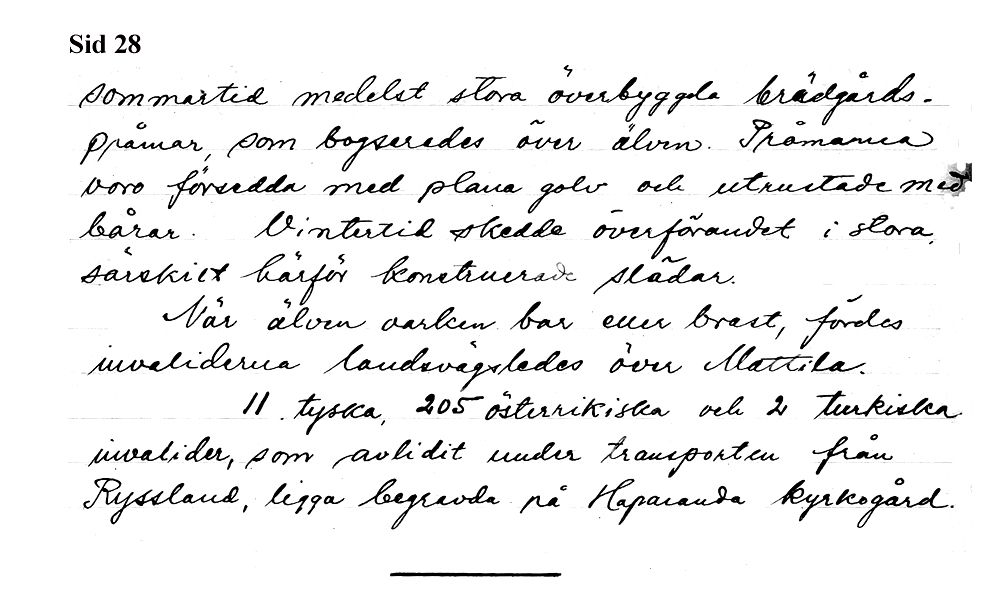 Sid 28
sommartid medelst stora överbyggda brädgårds-
pråmar, som bogserades över älven. Pråmarna
voro försedda med plana golv och utrustade med
bårar. Vintertid skedde överförandet i stora,
särskilt härför konstruerade slädar.
När älven varken bar eller brast, fördes
invaliderna landsvägsledes över Mattila.
11 tyska, 205 österrikiska och 2 turkiska
invalider, som avlidit under transporten från
Ryssland, ligga begravda på Haparanda kyrkogård.